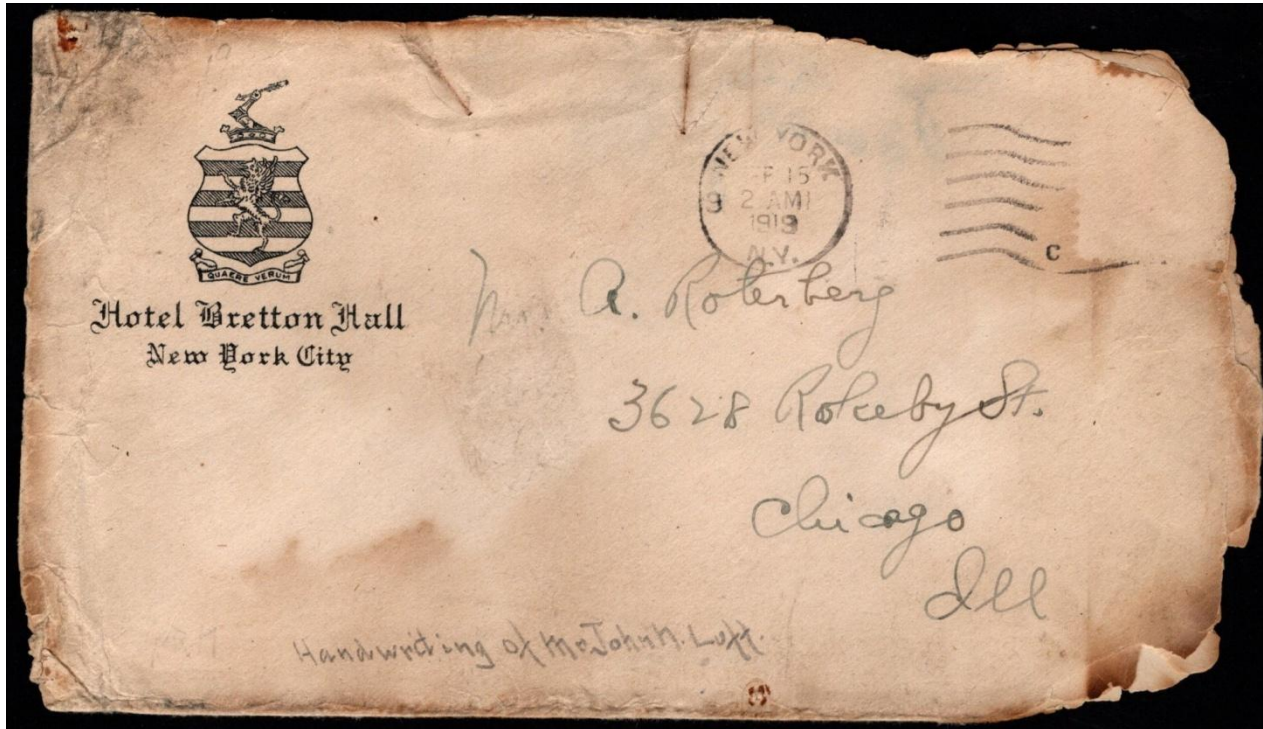 QUAERE VERUM
Hotel Bretton Hall
New York City
NEW YORK
15
2 AM
1919
N.Y.
C
A. Roterberg
3628 Rokeby St.
Chicago
Ill
Handwriting of Mr John N. Luff.